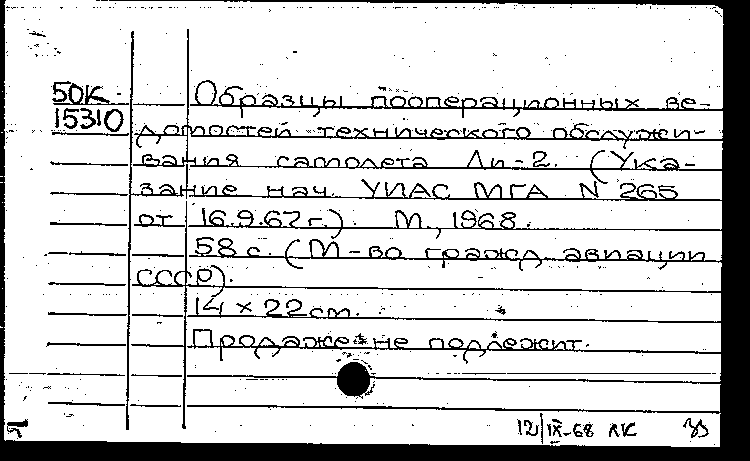 50К Образцы пооперационных ве-
15310 домостей технического обслужи-
вания самолета Ли-2. (Ука-
зание нач. УИАС МГА N 265
от 16.9.67г.). М., 1968.
58 с. (М-во гражд. авиации
СССР).
14 × 22 cm.
Продаже не подлежит.
12/IX-68 ЛК